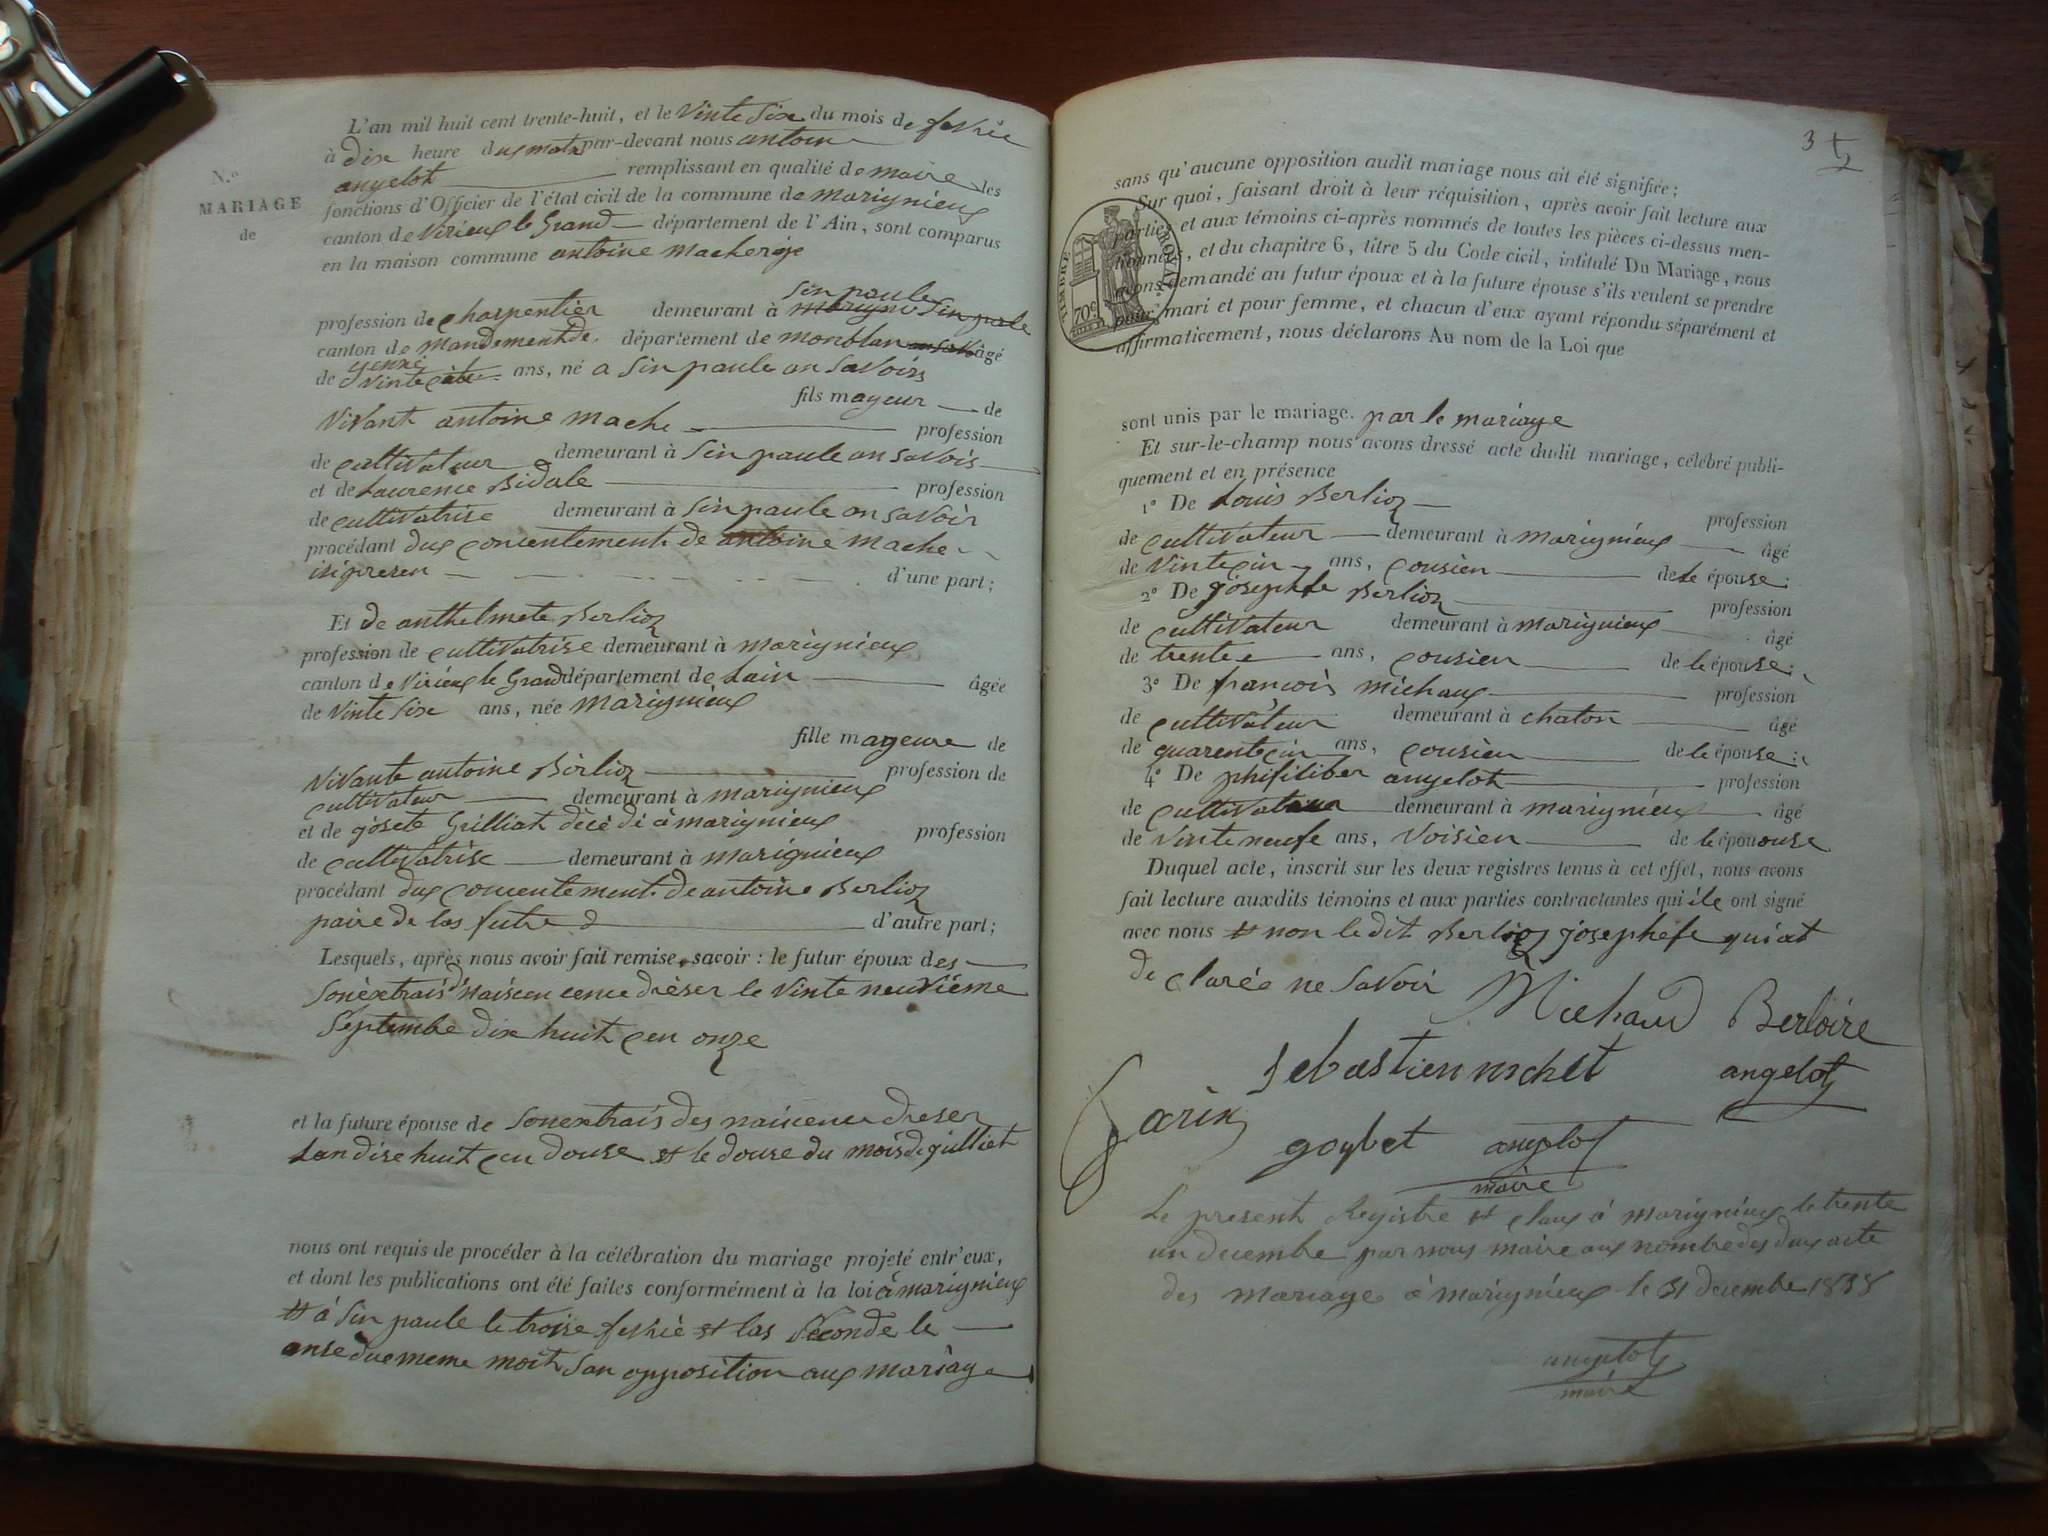 N.º
MARIAGE
de
L'an mil huit cent trente-huit, et le vinte six du mois de fevrie
à dix heure dux matn par-devant nous antoine
angelot remplissant en qualité de maire les
fonctions d'Officier de l'état civil de la commune de marignieux
canton de Virieux le Grand département de l'Ain, sont comparus
en la maison commune antoine mache
sin paule
profession de charpentier demeurant à marigni sin paule
canton de mandement de département de monblan an savo âgé
yenne
de vinte ans, né a sin paule an savois
fils mayeur de
vivant antoine mache profession
de cultivateur demeurant à sin paule an savois
et de Laurence Bidale profession
de cultivatrise demeurant à sin paule an savoir
procédant dux concentement de antoine mache
isipresen d'une part;
Et de anthelmete Berlioz
profession de cultivatrise demeurant à marignieux
canton de virieux le Grand département de Lain âgée
de vinte six ans, née marignieux
fille mageure de
vivante antoine Berlioz profession de
cultivateur demeurant à marignieux
et de josete Grilliat décédé à marignieux profession
de cultivatrise demeurant à marignieux
procédant dux concentement de antoine Berlioz
paire de las futre d'autre part;
Lesquels, après nous avoir fait remise, savoir : le futur époux des
son extrais naiscen cence drèser le vinte neuvième
septembe dix huit cen onze
et la future épouse de son extrais des naicence dreser
Lan dise huit cen douse et le douse du mois de gulliet
nous ont requis de procéder à la célébration du mariage projeté entr'eux,
et dont les publications ont été faites conformément à la loi à marignieux
et à sin paule le troise fevrié et las seconde le
onse due meme moit san opposition aux mariage
3
sans qu'aucune opposition audit mariage nous ait été signifiée;
Sur quoi, faisant droit à leur réquisition, après avoir fait lecture aux
parties et aux témoins ci-après nommés de toutes les pièces ci-dessus men-
tionnées, et du chapitre 6, titre 5 du Code civil, intitulé Du Mariage, nous
avons demandé au futur époux et à la future épouse s'ils veulent se prendre
pour mari et pour femme, et chacun d'eux ayant répondu séparément et
affirmativement, nous déclarons Au nom de la Loi que
TIMBRE ROYAL
70c
sont unis par le mariage. par le mariage
Et sur-le-champ nous avons dressé acte dudit mariage, célébré publi-
quement et en présence
1º De Louis Berlioz profession
de cultivateur demeurant à marignieux âgé
de vinte cin ans, cousien de le épouse;
2º De josephfe Berlioz profession
de cultivateur demeurant à marignieux âgé
de trente ans, cousien de le épouse;
3º De francois michaux profession
de cultivateur demeurant à chaton âgé
de quarente cin ans, cousien de le épouse;
4º De phifiliber angelot profession
de cultivateur demeurant à marignieux âgé
de vinte neufe ans, voisien de le épououse
Duquel acte, inscrit sur les deux registres tenus à cet effet, nous avons
fait lecture auxdits témoins et aux parties contractantes qui ile ont signé
avec nous et non le dit Berlioz josephefe qui at
de clarée ne savoir
Michaud Berloire
Sebastien michet angelot
Carin
goybet angelot
maire
Le present Registre et claux à marignieux le trente
un decembe par nous maire aux nombe des dux acte
des mariage à marignieux le 31 decembe 1838
angelot
maire